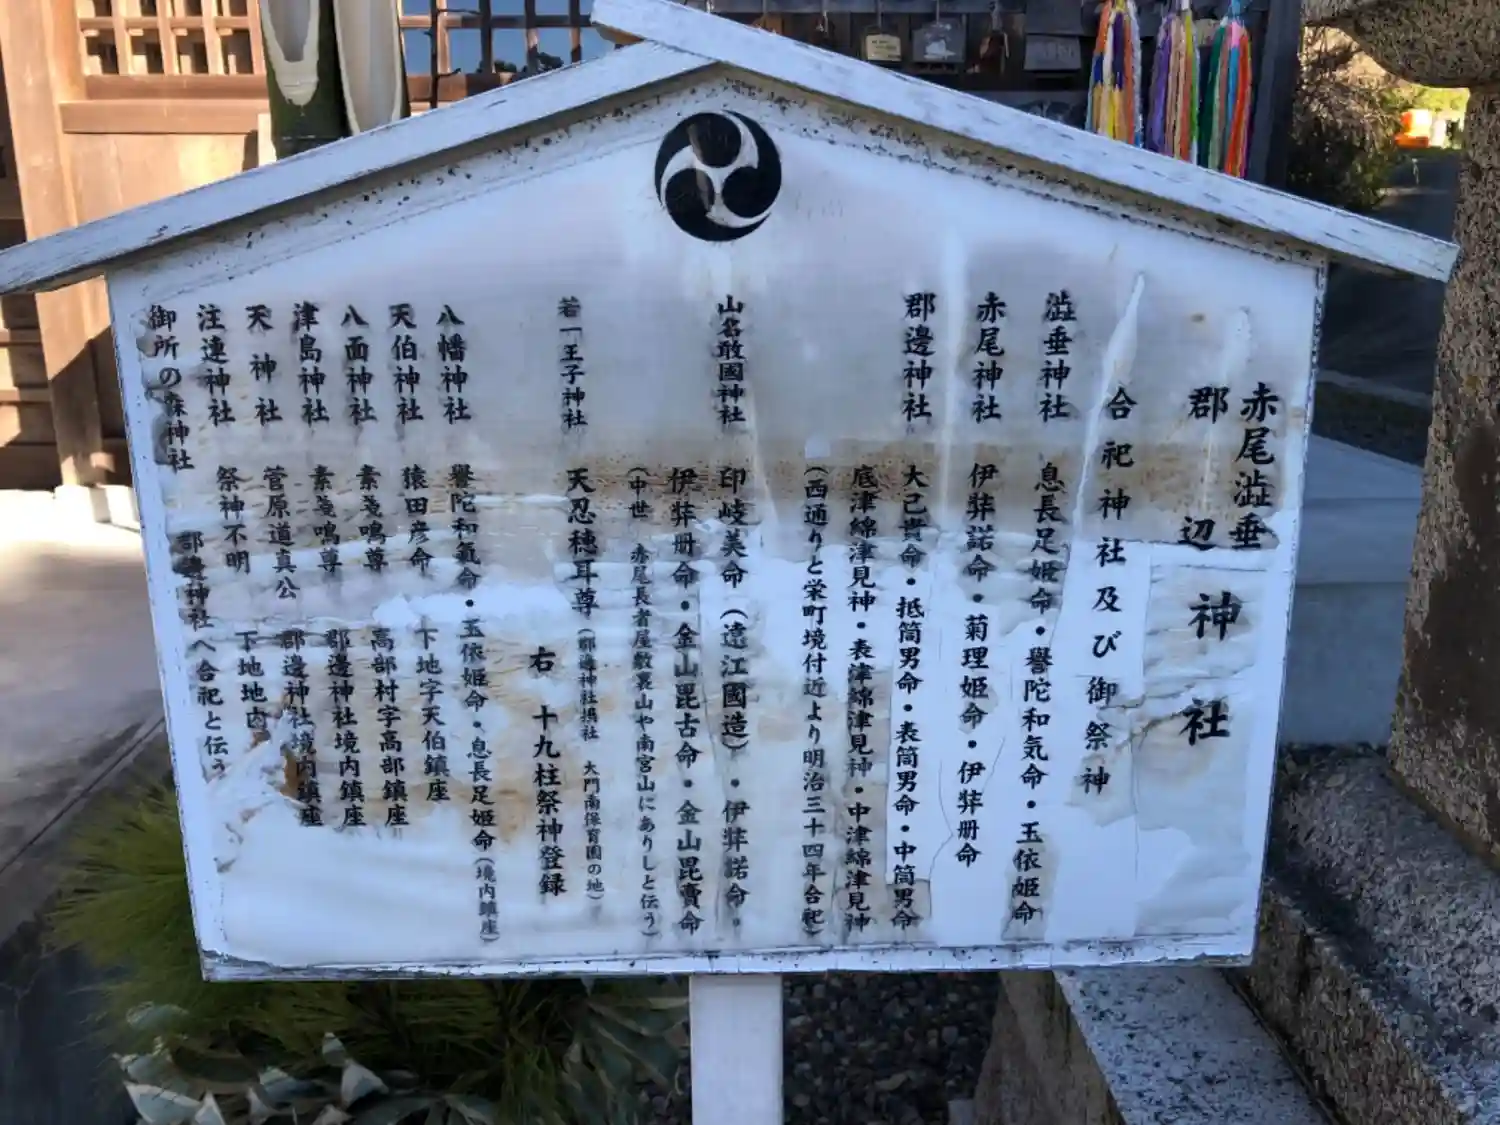 赤尾澁垂
郡辺神社
合祀神社及び御祭神
澁垂神社 息長足姫命・譽陀和気命・玉依姫命
赤尾神社 伊弉諾命・菊理姫命・伊弉册命
郡邊神社 大己貴命・抵筒男命・表筒男命・中筒男命
底津綿津見神・表津綿津見神・中津綿津見神
(西通りと栄町境付近より明治三十四年合祀)
山名敢國神社 印岐美命(遠江國造)・伊弉諾命・
伊弉册命・金山毘古命・金山毘賣命
(中世 赤尾長者屋敷裏山や南宮山にありしと伝う)
若一王子神社 天忍穂耳尊(郡邊神社摂社 大門南保育園の地)
右 十九柱祭神登録
八幡神社 譽陀和氣命・玉依姫命・息長足姫命(境内鎮座)
天伯神社 猿田彦命 下地字天伯鎮座
八面神社 素戔鳴尊 高部村字高部鎮座
津島神社 素戔鳴尊 郡邊神社境内鎮座
天神社 菅原道真公 郡邊神社境内鎮座
注連神社 祭神不明 下地地内
御所の森神社 郡邊神社へ合祀と伝う